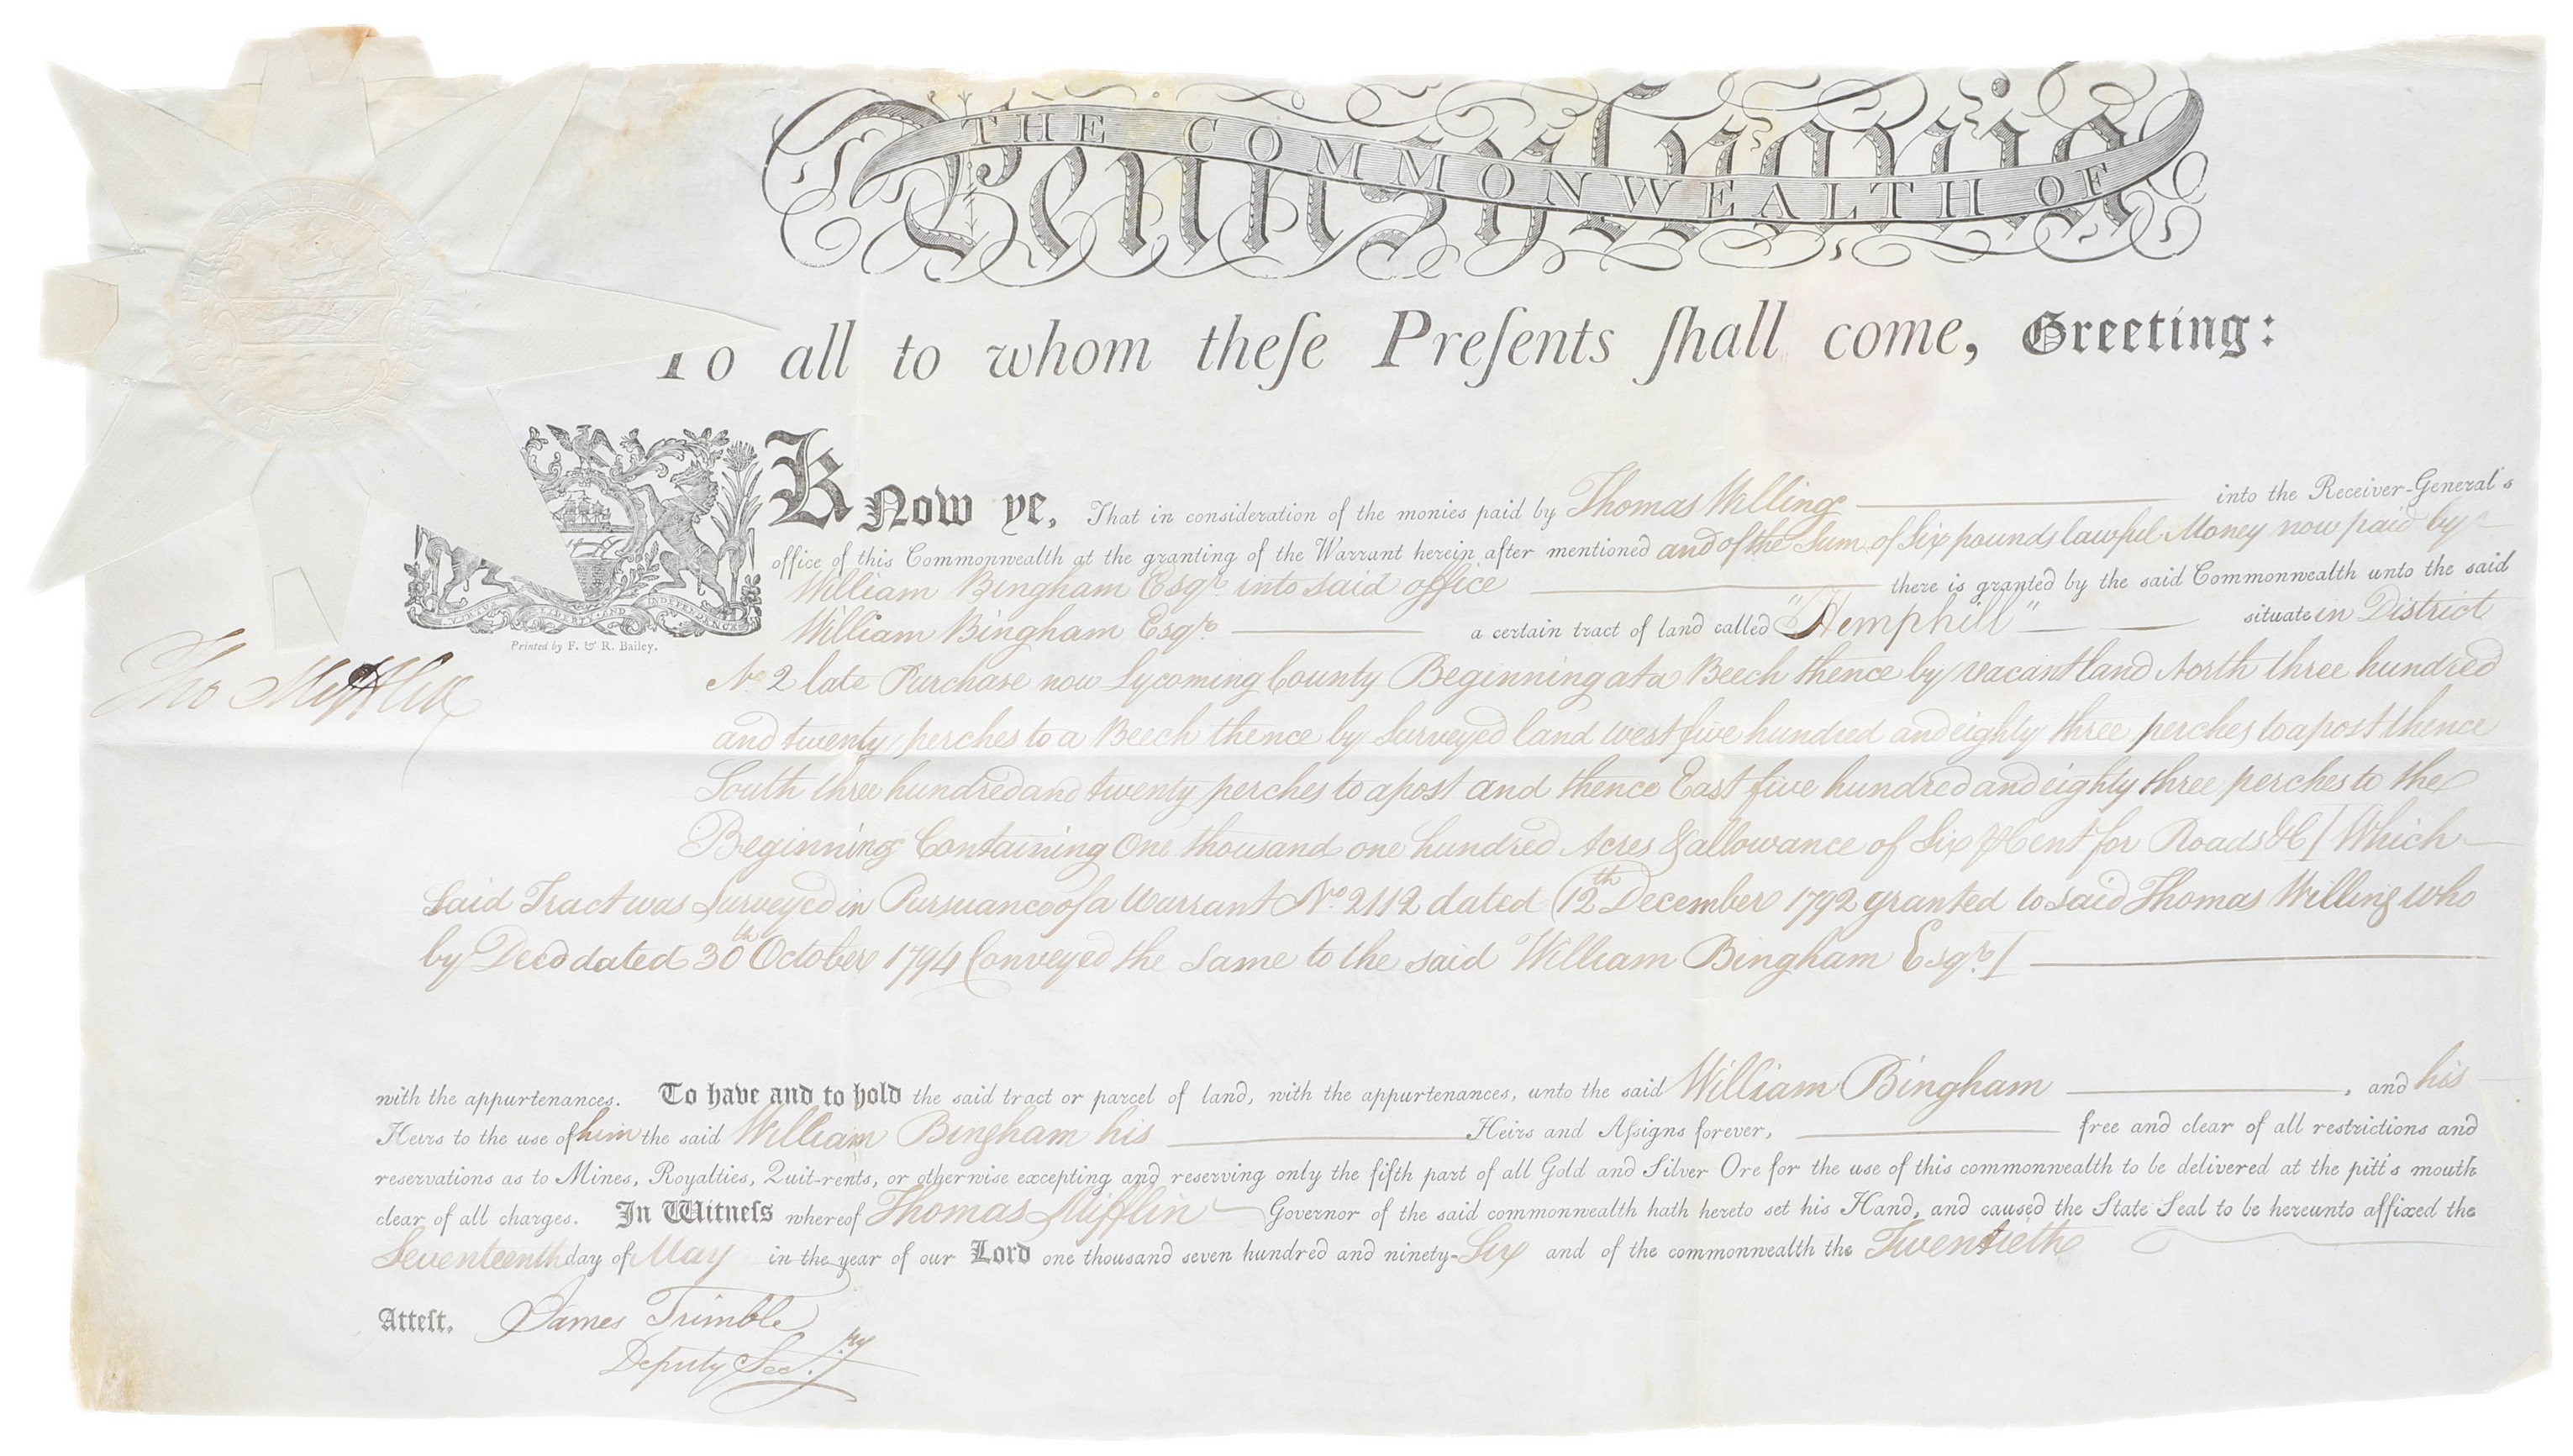 THE COMMONWEALTH OF
Pennsylvania
To all to whom theſe Preſents ſhall come, Greeting:
Know ye, That in consideration of the monies paid by Thomas Willing into the Receiver-General's
office of this Commonwealth at the granting of the Warrant herein after mentioned and of the Sum of Six pounds lawful Money now paid by
William Bingham Esqr. into said office there is granted by the said Commonwealth unto the said
William Bingham Esqr. a certain tract of land called "Hemphill" situate in District
VIRTUE LIBERTY AND INDEPENDENCE
Printed by F. & R. Bailey.
Tho Mifflin
No 2 late Purchase now Lycoming County Beginning at a Beech thence by vacant land North three hundred
and twenty perches to a Beech thence by Surveyed land west five hundred and eighty three perches to a post thence
South three hundred and twenty perches to a post and thence East five hundred and eighty three perches to the
Beginning Containing One thousand one hundred Acres & allowance of Six ⅌ Cent for Roads &c [Which
said Tract was Surveyed in Pursuance of a Warrant No. 2112 dated 12th December 1792 granted to said Thomas Willing who
by Deed dated 30th October 1794 Conveyed the same to the said William Bingham Esqr.]
with the appurtenances. To have and to hold the said tract or parcel of land, with the appurtenances, unto the said William Bingham , and his
Heirs to the use of him the said William Bingham his Heirs and Aſsigns forever, free and clear of all restrictions and
reservations as to Mines, Royalties, Quit-rents, or otherwise excepting and reserving only the fifth part of all Gold and Silver Ore for the use of this commonwealth to be delivered at the pitt's mouth
clear of all charges. In Witneſs whereof Thomas Mifflin Governor of the said commonwealth hath hereto set his Hand, and caused the State Seal to be hereunto affixed the
Seventeenth day of May in the year of our Lord one thousand seven hundred and ninety-Six and of the commonwealth the Twentieth
Atteſt. James Trimble
Deputy Secry.